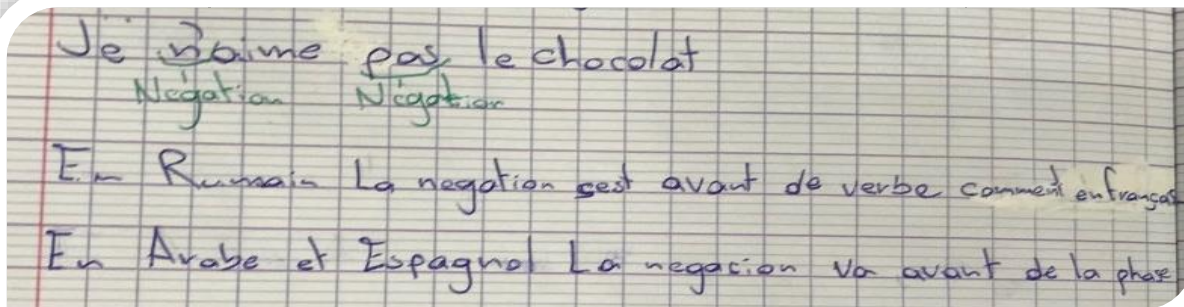 Je n'aime pas le chocolat
Négation Négation
En Rumain La negation sest avant de verbe comment en français
En Arabe et Espagnol La negacion va avant de la phase